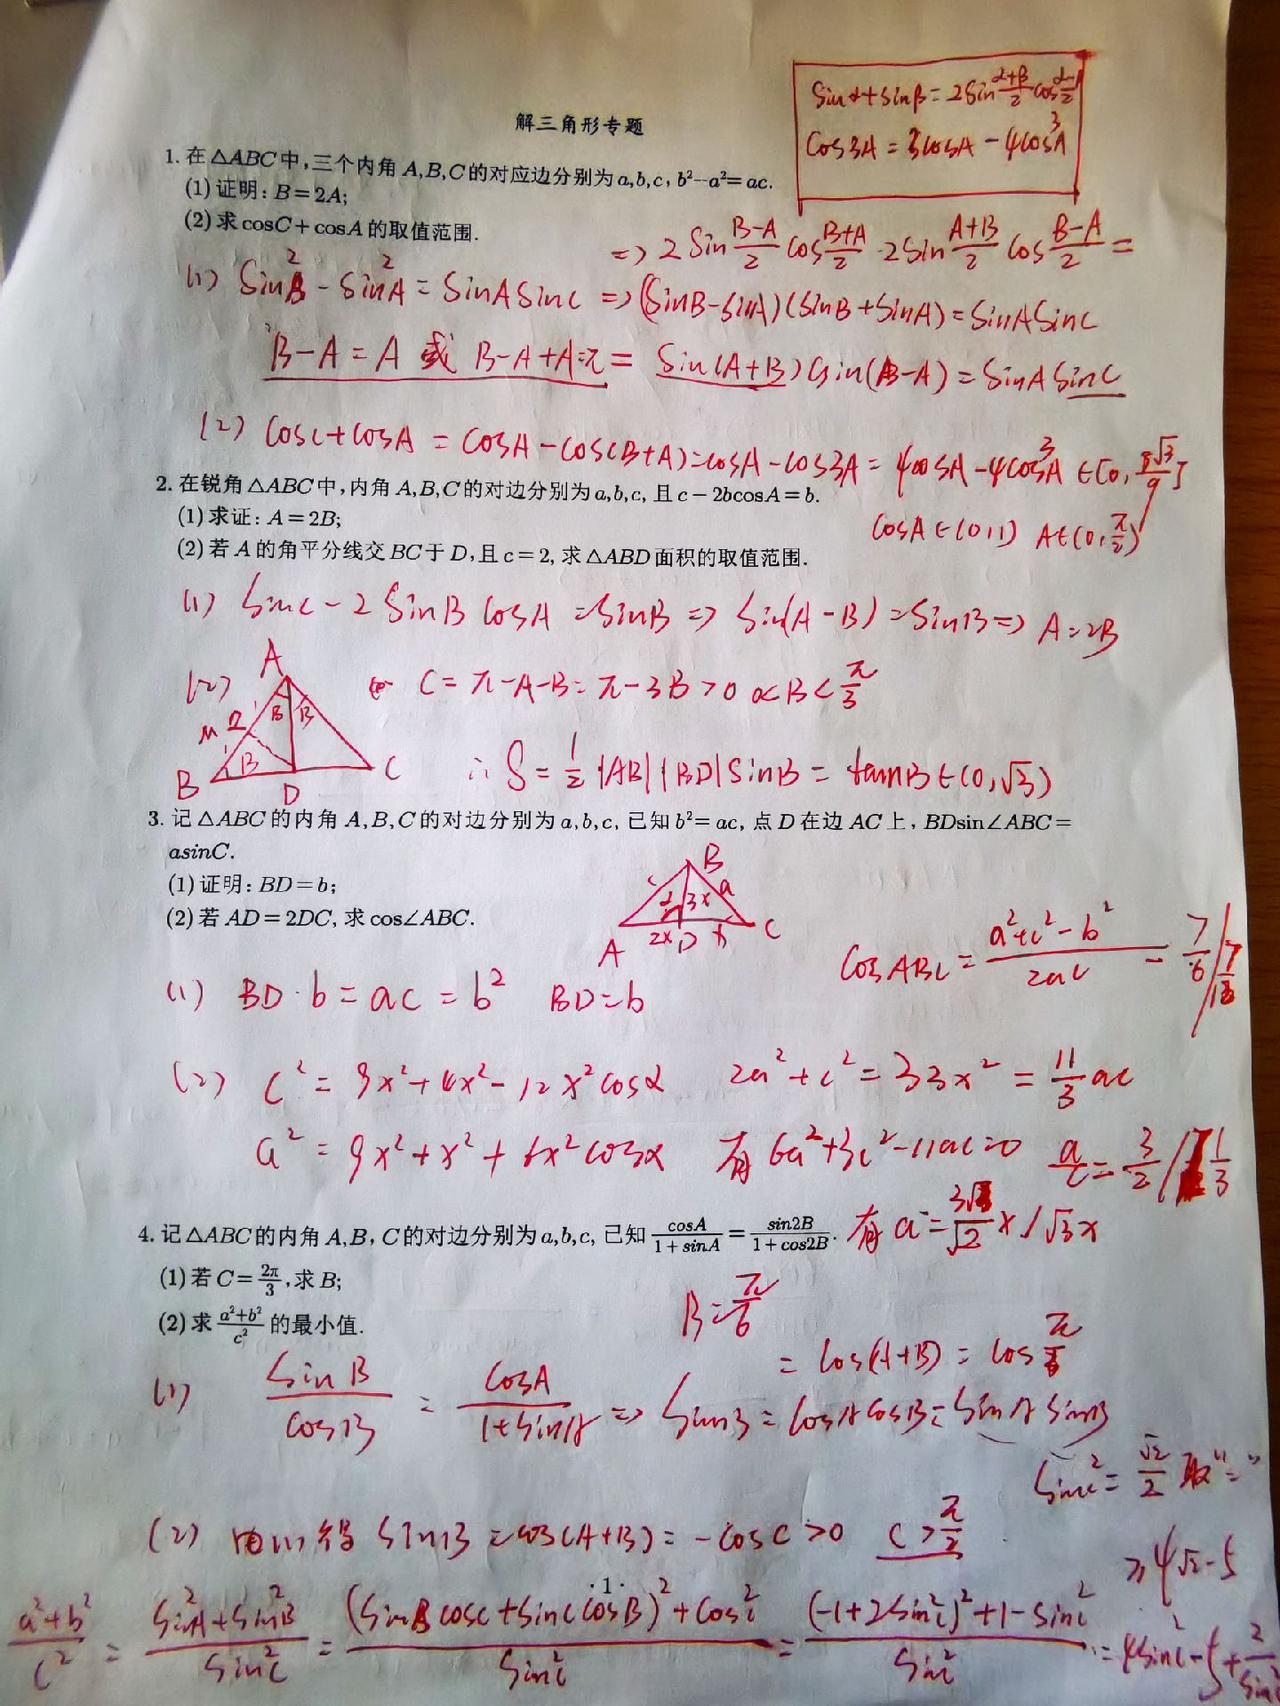 sinα+sinβ=2sin(α+β)/2 cos(α-β)/2
cos3A=3cosA-4cos³A
解三角形专题
1. 在△ABC中,三个内角A,B,C的对应边分别为a,b,c, b²-a²=ac.
(1)证明:B=2A;
(2)求cosC+cosA的取值范围.
=> 2sin(B-A)/2 cos(B+A)/2 · 2sin(A+B)/2 cos(B-A)/2 =
(1) sin²B-sin²A=sinAsinC => (sinB-sinA)(sinB+sinA)=sinAsinC
B-A=A 或 B-A+A=π = sin(A+B)sin(B-A)=sinAsinC
(2) cosC+cosA=cosA-cos(B+A)=cosA-cos3A=4cosA-4cos³A∈[0, 8√3/9]
2. 在锐角△ABC中,内角A,B,C的对边分别为a,b,c, 且c-2bcosA=b.
(1)求证:A=2B;
cosA∈(0,1) A∈(0,π/2)
(2)若A的角平分线交BC于D,且c=2, 求△ABD面积的取值范围.
(1) sinC-2sinBcosA=sinB => sin(A-B)=sinB => A=2B
A
(2) C=π-A-B=π-3B>0 0<B<π/3
B B
B
B D C
∴S=1/2|AB||BD|sinB=tanB∈(0,√3)
3. 记△ABC的内角A,B,C的对边分别为a,b,c, 已知b²=ac, 点D在边AC上, BDsin∠ABC=
asinC.
(1)证明:BD=b;
(2)若AD=2DC, 求cos∠ABC.
B
3x a
A 2x D x C
cosABC=(a²+c²-b²)/2ac = 7/6 / 7/12
(1) BD·b=ac=b² BD=b
(2) c²=9x²+4x²-12x²cosα 2a²+c²=33x²=11/3 ac
a²=9x²+x²+6x²cosα 有6a²+3c²-11ac=0 a/c=3/2 / 1/3
4. 记△ABC的内角A,B,C的对边分别为a,b,c, 已知cosA/(1+sinA)=sin2B/(1+cos2B).
有a=3√2/√2 x/√3x
(1)若C=2π/3,求B;
B=π/6
(2)求(a²+b²)/c²的最小值.
=cos(A+B)=cos π/6
(1) sinB/cosB = cosA/(1+sinA) => sinB=cosAcosB-sinAsinB
sin²C=√2/2 取"="
(2) 由(1)得 sinB=cos(A+B)=-cosC>0 C>π/2
≥4√2-5
·1·
(a²+b²)/c² = (sin²A+sin²B)/sin²C = ((sinBcosC+sinCcosB)²+cos²C)/sin²C = ((-1+2sin²C)²+1-sin²C)/sin²C = 4sin²C-5+2/sin²